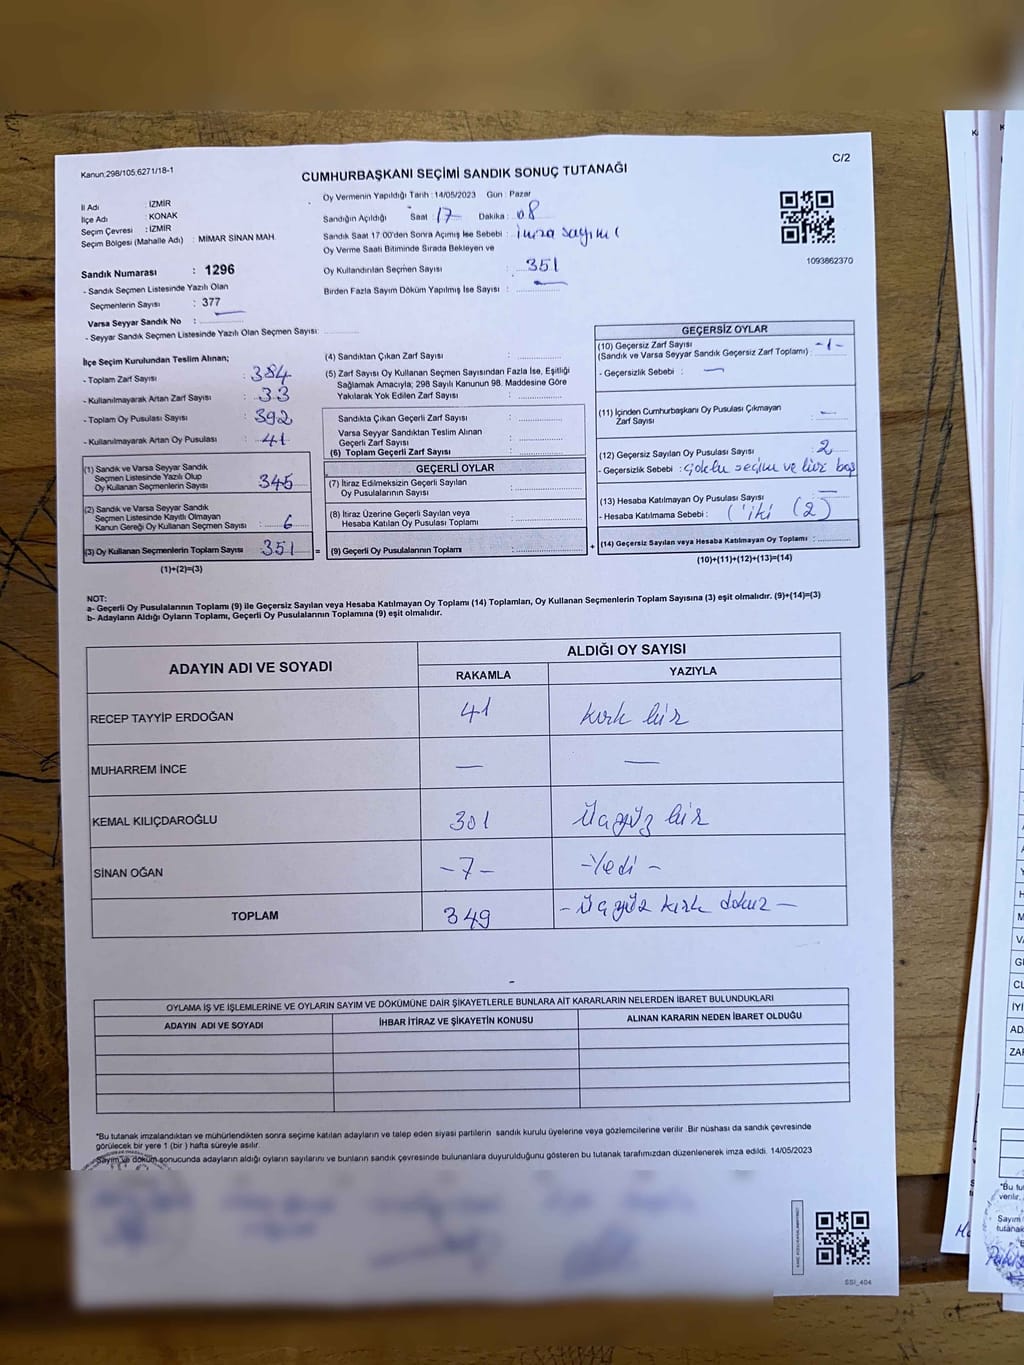 Kanun:298/105:6271/18-1
C/2
CUMHURBAŞKANI SEÇİMİ SANDIK SONUÇ TUTANAĞI
İl Adı : İZMİR
İlçe Adı : KONAK
Seçim Çevresi : İZMİR
Seçim Bölgesi (Mahalle Adı) : MİMAR SİNAN MAH.
Oy Vermenin Yapıldığı Tarih : 14/05/2023 Gün : Pazar
Sandığın Açıldığı Saat : 17 Dakika : 08
Sandık Saat 17:00'den Sonra Açımış İse Sebebi : imza sayımı
Oy Verme Saati Bitiminde Sırada Bekleyen ve
Oy Kullandırılan Seçmen Sayısı : 351
Birden Fazla Sayım Döküm Yapılmış İse Sayısı :
1093862370
Sandık Numarası : 1296
- Sandık Seçmen Listesinde Yazılı Olan
Seçmenlerin Sayısı : 377
Varsa Seyyar Sandık No :
- Seyyar Sandık Seçmen Listesinde Yazılı Olan Seçmen Sayısı:
İlçe Seçim Kurulundan Teslim Alınan;
- Toplam Zarf Sayısı : 384
- Kullanılmayarak Artan Zarf Sayısı : 33
- Toplam Oy Pusulası Sayısı : 392
- Kullanılmayarak Artan Oy Pusulası : 41
(1) Sandık ve Varsa Seyyar Sandık
Seçmen Listesinde Yazılı Olup
Oy Kullanan Seçmenlerin Sayısı : 345
(2) Sandık ve Varsa Seyyar Sandık
Seçmen Listesinde Kayıtlı Olmayan
Kanun Gereği Oy Kullanan Seçmen Sayısı : 6
(3) Oy Kullanan Seçmenlerin Toplam Sayısı : 351 =
(1)+(2)=(3)
(4) Sandıktan Çıkan Zarf Sayısı :
(5) Zarf Sayısı Oy Kullanan Seçmen Sayısından Fazla İse, Eşitliği
Sağlamak Amacıyla; 298 Sayılı Kanunun 98. Maddesine Göre
Yakılarak Yok Edilen Zarf Sayısı :
Sandıkta Çıkan Geçerli Zarf Sayısı :
Varsa Seyyar Sandıktan Teslim Alınan
Geçerli Zarf Sayısı :
(6) Toplam Geçerli Zarf Sayısı :
GEÇERLİ OYLAR
(7) İtiraz Edilmeksizin Geçerli Sayılan
Oy Pusulalarının Sayısı :
(8) İtiraz Üzerine Geçerli Sayılan veya
Hesaba Katılan Oy Pusulası Toplamı :
(9) Geçerli Oy Pusulalarının Toplamı : +
GEÇERSİZ OYLAR
(10) Geçersiz Zarf Sayısı : -1-
(Sandık ve Varsa Seyyar Sandık Geçersiz Zarf Toplamı)
- Geçersizlik Sebebi : —
(11) İçinden Cumhurbaşkanı Oy Pusulası Çıkmayan
Zarf Sayısı : —
(12) Geçersiz Sayılan Oy Pusulası Sayısı : 2
- Geçersizlik Sebebi : çoklu seçim ve boş
(13) Hesaba Katılmayan Oy Pusulası Sayısı : —
- Hesaba Katılmama Sebebi : (iki (2)
(14) Geçersiz Sayılan veya Hesaba Katılmayan Oy Toplamı :
(10)+(11)+(12)+(13)=(14)
NOT:
a- Geçerli Oy Pusulalarının Toplamı (9) ile Geçersiz Sayılan veya Hesaba Katılmayan Oy Toplamı (14) Toplamları, Oy Kullanan Seçmenlerin Toplam Sayısına (3) eşit olmalıdır. (9)+(14)=(3)
b- Adayların Aldığı Oyların Toplamı, Geçerli Oy Pusulalarının Toplamına (9) eşit olmalıdır.
ADAYIN ADI VE SOYADI
ALDIĞI OY SAYISI
RAKAMLA YAZIYLA
RECEP TAYYİP ERDOĞAN 41 kırk bir
MUHARREM İNCE — —
KEMAL KILIÇDAROĞLU 301 üçyüz bir
SİNAN OĞAN -7- -Yedi-
TOPLAM 349 -üçyüz kırk dokuz-
OYLAMA İŞ VE İŞLEMLERİNE VE OYLARIN SAYIM VE DÖKÜMÜNE DAİR ŞİKAYETLERLE BUNLARA AİT KARARLARIN NELERDEN İBARET BULUNDUKLARI
ADAYIN ADI VE SOYADI İHBAR İTİRAZ VE ŞİKAYETİN KONUSU ALINAN KARARIN NEDEN İBARET OLDUĞU
*Bu tutanak imzalandıktan ve mühürlendikten sonra seçime katılan adayların ve talep eden siyasi partilerin sandık kurulu üyelerine veya gözlemcilerine verilir .Bir nüshası da sandık çevresinde
görülecek bir yere 1 (bir ) hafta süreyle asılır.
Sayım ve döküm sonucunda adayların aldığı oyların sayılarını ve bunların sandık çevresinde bulunanlara duyurulduğunu gösteren bu tutanak tarafımızdan düzenlenerek imza edildi. 14/05/2023
SSİ_404